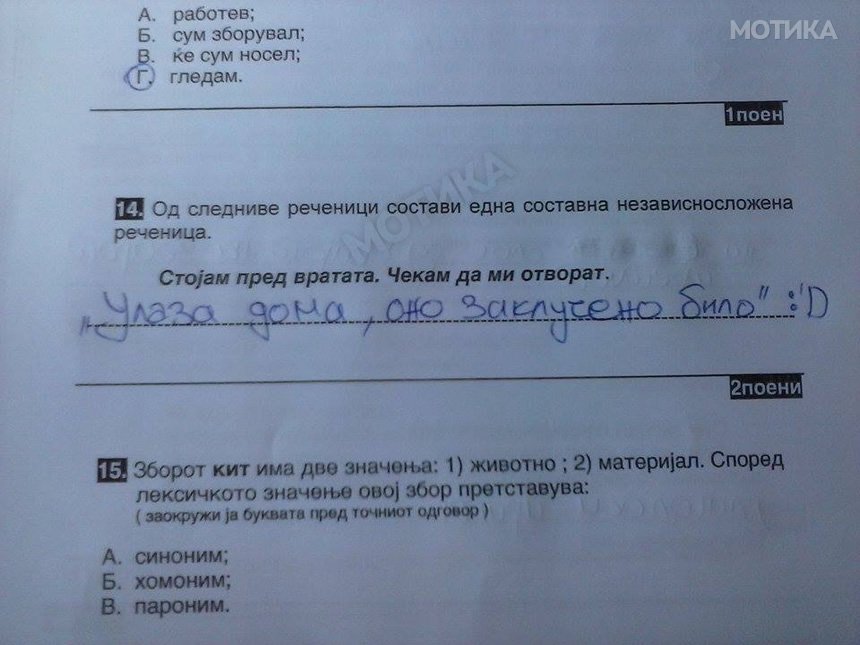 А. работев;
МОТИКА
Б. сум зборувал;
В. ќе сум носел;
Г. гледам.
1поен
МОТИКА
14. Од следниве реченици состави една составна независносложена
реченица.
Стојам пред вратата. Чекам да ми отворат.
„Улаза дома, оно заклучено било" :'D
2поени
15. Зборот кит има две значења: 1) животно ; 2) материјал. Според
лексичкото значење овој збор претставува:
( заокружи ја буквата пред точниот одговор )
А. синоним;
Б. хомоним;
В. пароним.